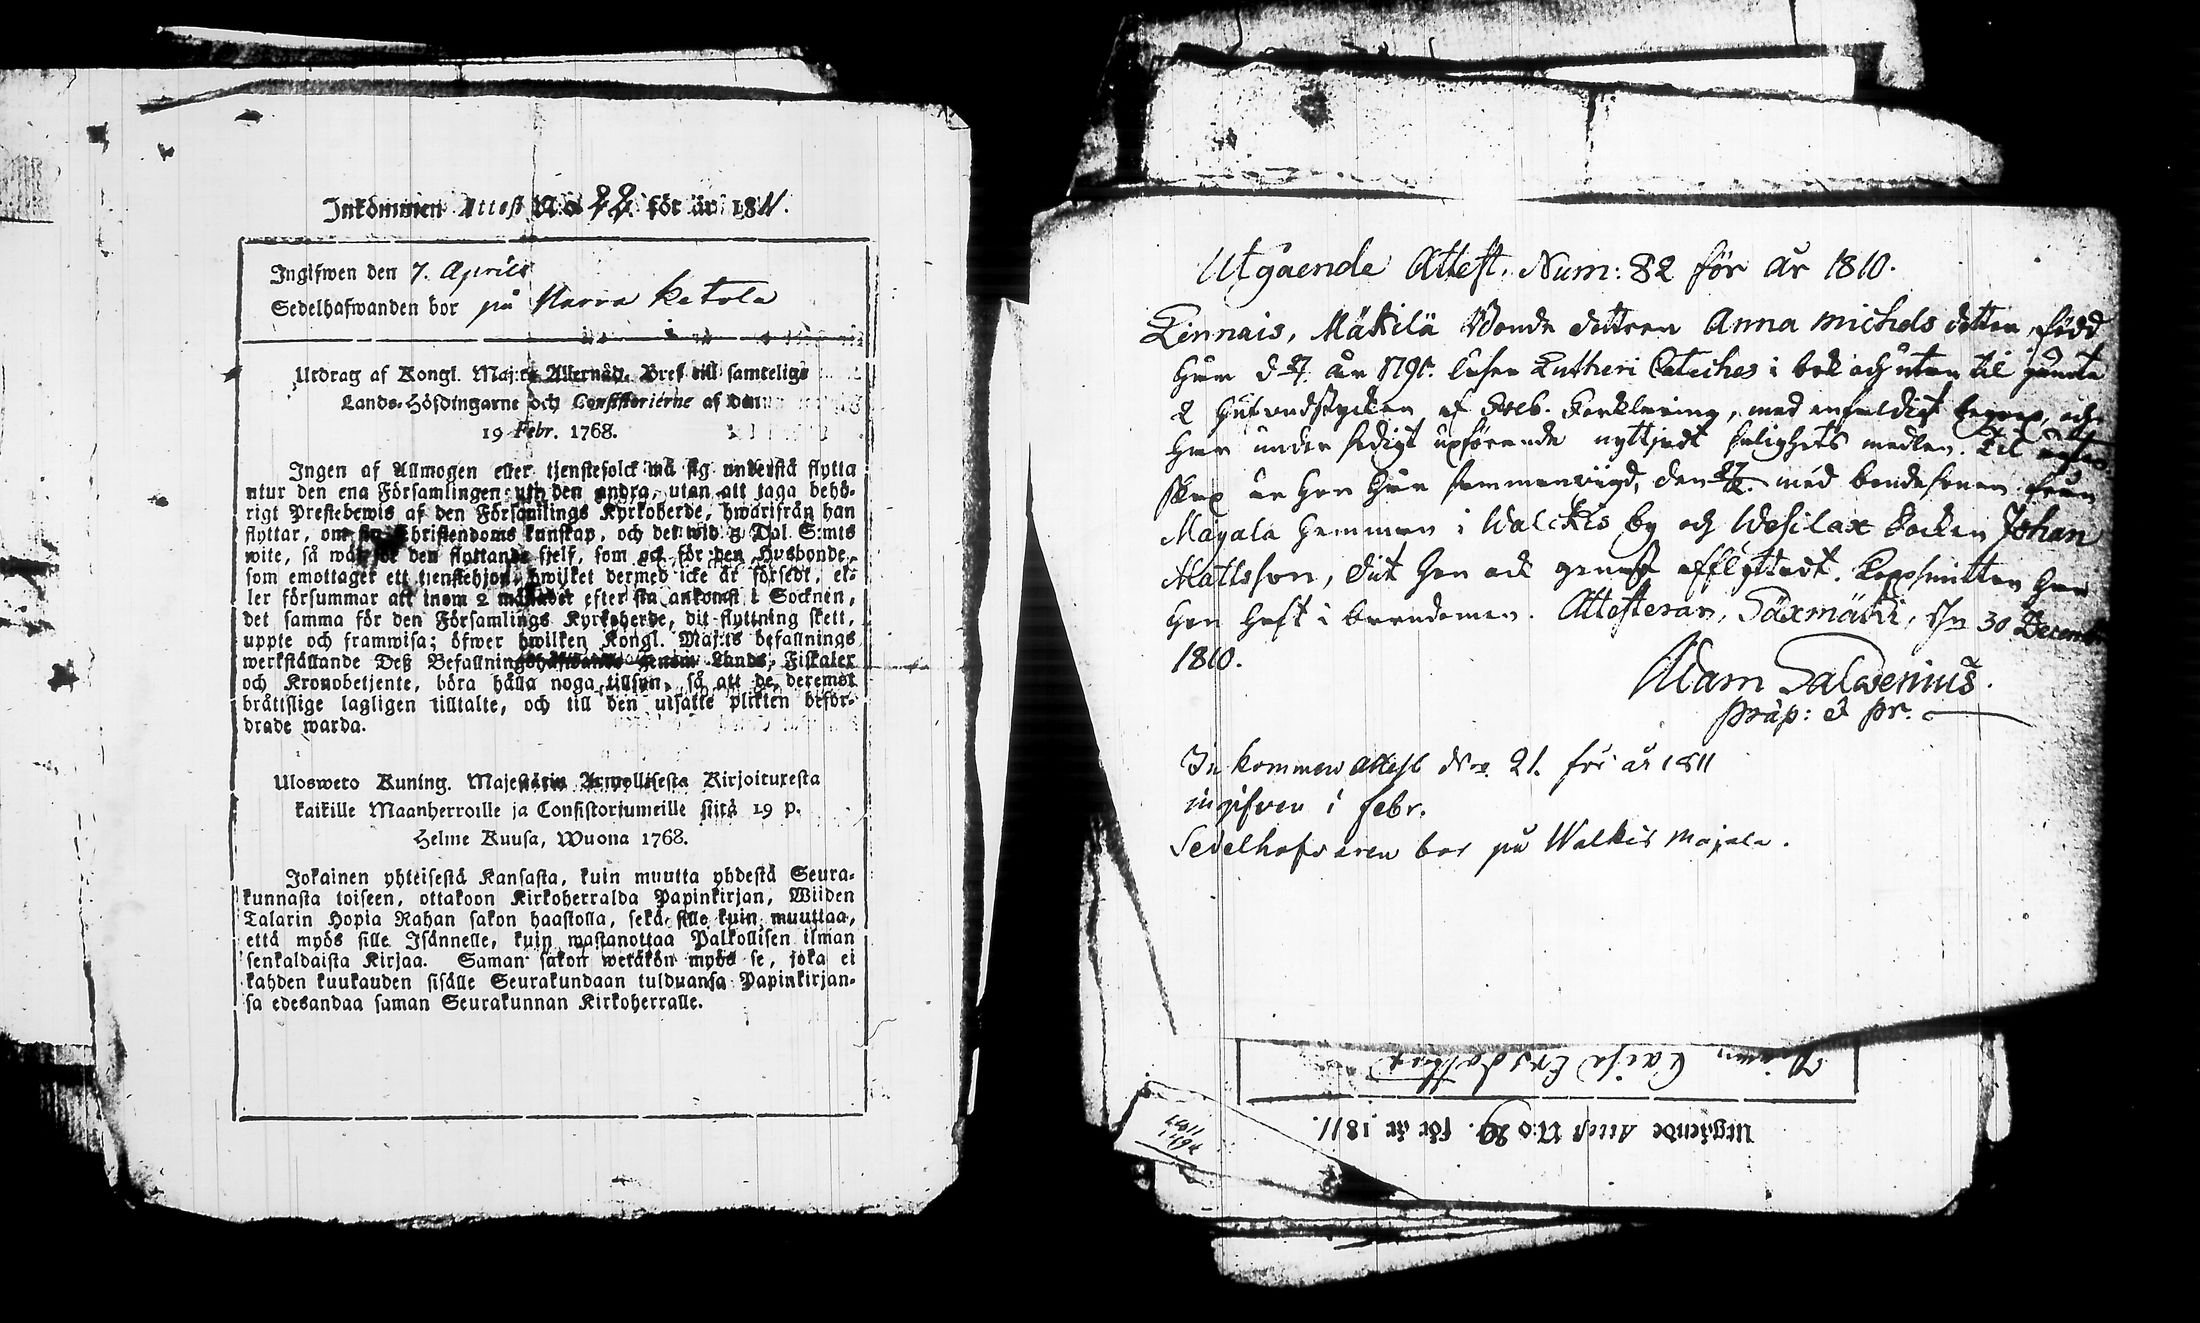 Inkommen Attest N:o 22. för år 1811.
Ingifwen den 7. Aprils
Sedelhafwanden bor på Narva Ketola
Utdrag af Kongl. Maj:ts Allernåd. Bref till samtelige
Lands-Höfdingarne och Consistorierne af den
19 Febr. 1768.
Ingen af Allmogen eller tjenstefolck må sig understå flytta
utur den ena Församlingen uti den andra, utan att taga behö-
rigt Prestebewis af den Församlings Kyrkoherde, hwarifrån han
flyttar, om sin Christendoms kunskap, och det wid 5 Dal. S:mts
wite, så wäl för den flyttande sjelf, som ock för den Husbonde,
som emottager ett tjenstehjon, hwilket dermed icke är försedt, el-
ler försummar att inom 2 månader efter sin ankomst i Socknen,
det samma för den Församlings Kyrkoherde, dit flyttning skett,
uppte och framwisa; öfwer hwilken Kongl. Maj:ts befallnings
werkställande Deß Befallningshafwande genom Lands-Fiskaler
och Kronobetjente, böra hålla noga tillsyn, så att de deremot
bråttslige lagligen tilltalte, och till den utsatte plickten beför-
drade warda.
Ulosweto Kuning. Majestätin Armollisesta Kirjoituxesta
kaikille Maanherroille ja Consistoriumeille siitä 19 p.
Helme Kuusa, Wuona 1768.
Jokainen yhteisestä Kansasta, kuin muutta yhdestä Seura-
kunnasta toiseen, ottakoon Kirkoherralda Papinkirjan, Wiiden
Talarin Hopia Rahan sakon haastolla, sekä sille kuin muuttaa,
että myös sille Isännelle, kuin wastanottaa Palkollisen ilman
senkaldaista Kirjaa. Saman sakon wetäkön myös se, joka ei
kahden kuukauden sisälle Seurakundaan tulduansa Papinkirjan-
sa edesandaa saman Seurakunnan Kirkoherralle.
Utgående Attest. Num: 82 för år 1810.
Linnais, Mäkilä Bonde dottren Anna Michels dotter, född
här d. 27. år 1791. läser Lutheri Cateches i bok och utan til jämte
2 hufvudstycken af Sveb. Förklaring, med enfaldigt begrep, och
har under sedigt upförande nyttjadt salighets medlen. Til
skap är hon här sammanvigd, den 27/12 med bondesonen från
Mayala hemman i Walckis by och Wesilax Socken Johan
Mattsson, dit hon ock genast afflyttadt. Koppsmitten har
hon haft i barndomen. Attesterar, Säxmäki, d. 30 Decemb
1810.
Adam Salvenius.
Präp: et Pr.
Inkommen attest No. 21. för år 1811
ingifven i Febr.
Sedelhafvaren bor på Walkis Majala.
Pigan Caisa Ersdotter
Utgående Attest N:o 29. för år 1811.